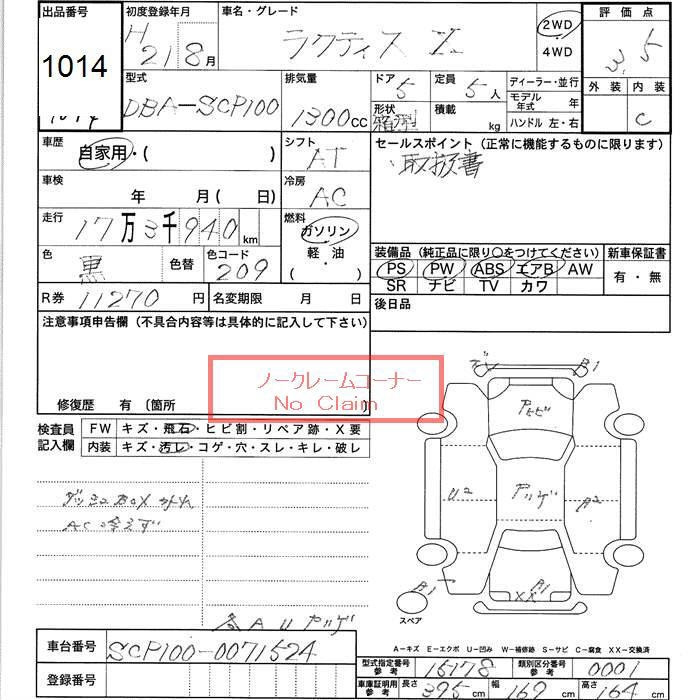 出品番号 初度登録年月 車名・グレード 2WD 4WD 評価点
1014 H 21 8月 ラクティス X 3.5
型式 排気量 ドア 定員 ディーラー・並行 外装 内装
DBA-SCP100 1300cc 5 5人 モデル年式 年 C
形状 箱型 積載 kg ハンドル 左・右
車歴 シフト セールスポイント(正常に機能するものに限ります)
自家用・( ) AT 取扱書
車検 冷房
年 月(日) AC
走行 燃料
17万3千940km ガソリン 軽・油 ・( )
色 黒 色替 色コード 209
装備品(純正品に限り○をつけてください) 新車保証書
PS PW ABS エアB AW 有・無
SR ナビ TV カワ
R券 11270円 名変期限 月 日
後日品
注意事項申告欄(不具合内容等は具体的に記入して下さい)
ノークレームコーナー
No Claim
修復歴 有 〔箇所
検査員記入欄 FW キズ・飛石・ヒビ割・リペア跡・X要
内装 キズ・汚レ・コゲ・穴・スレ・キレ・破レ
ダッシュBOX外れ
AC冷えず
B1
アヒビ
U2 アハゲ A2
B1 B1
XX
スペア
各AUアハゲ
A-キズ E-エクボ U-凹み W-補修跡 S-サビ C-腐食 XX-交換済
車台番号 SCP100-0071524
型式指定番号参考 15178 類別区分番号参考 0001
登録番号
車庫証明用参考 長さ 395cm 幅 169cm 高さ 164cm